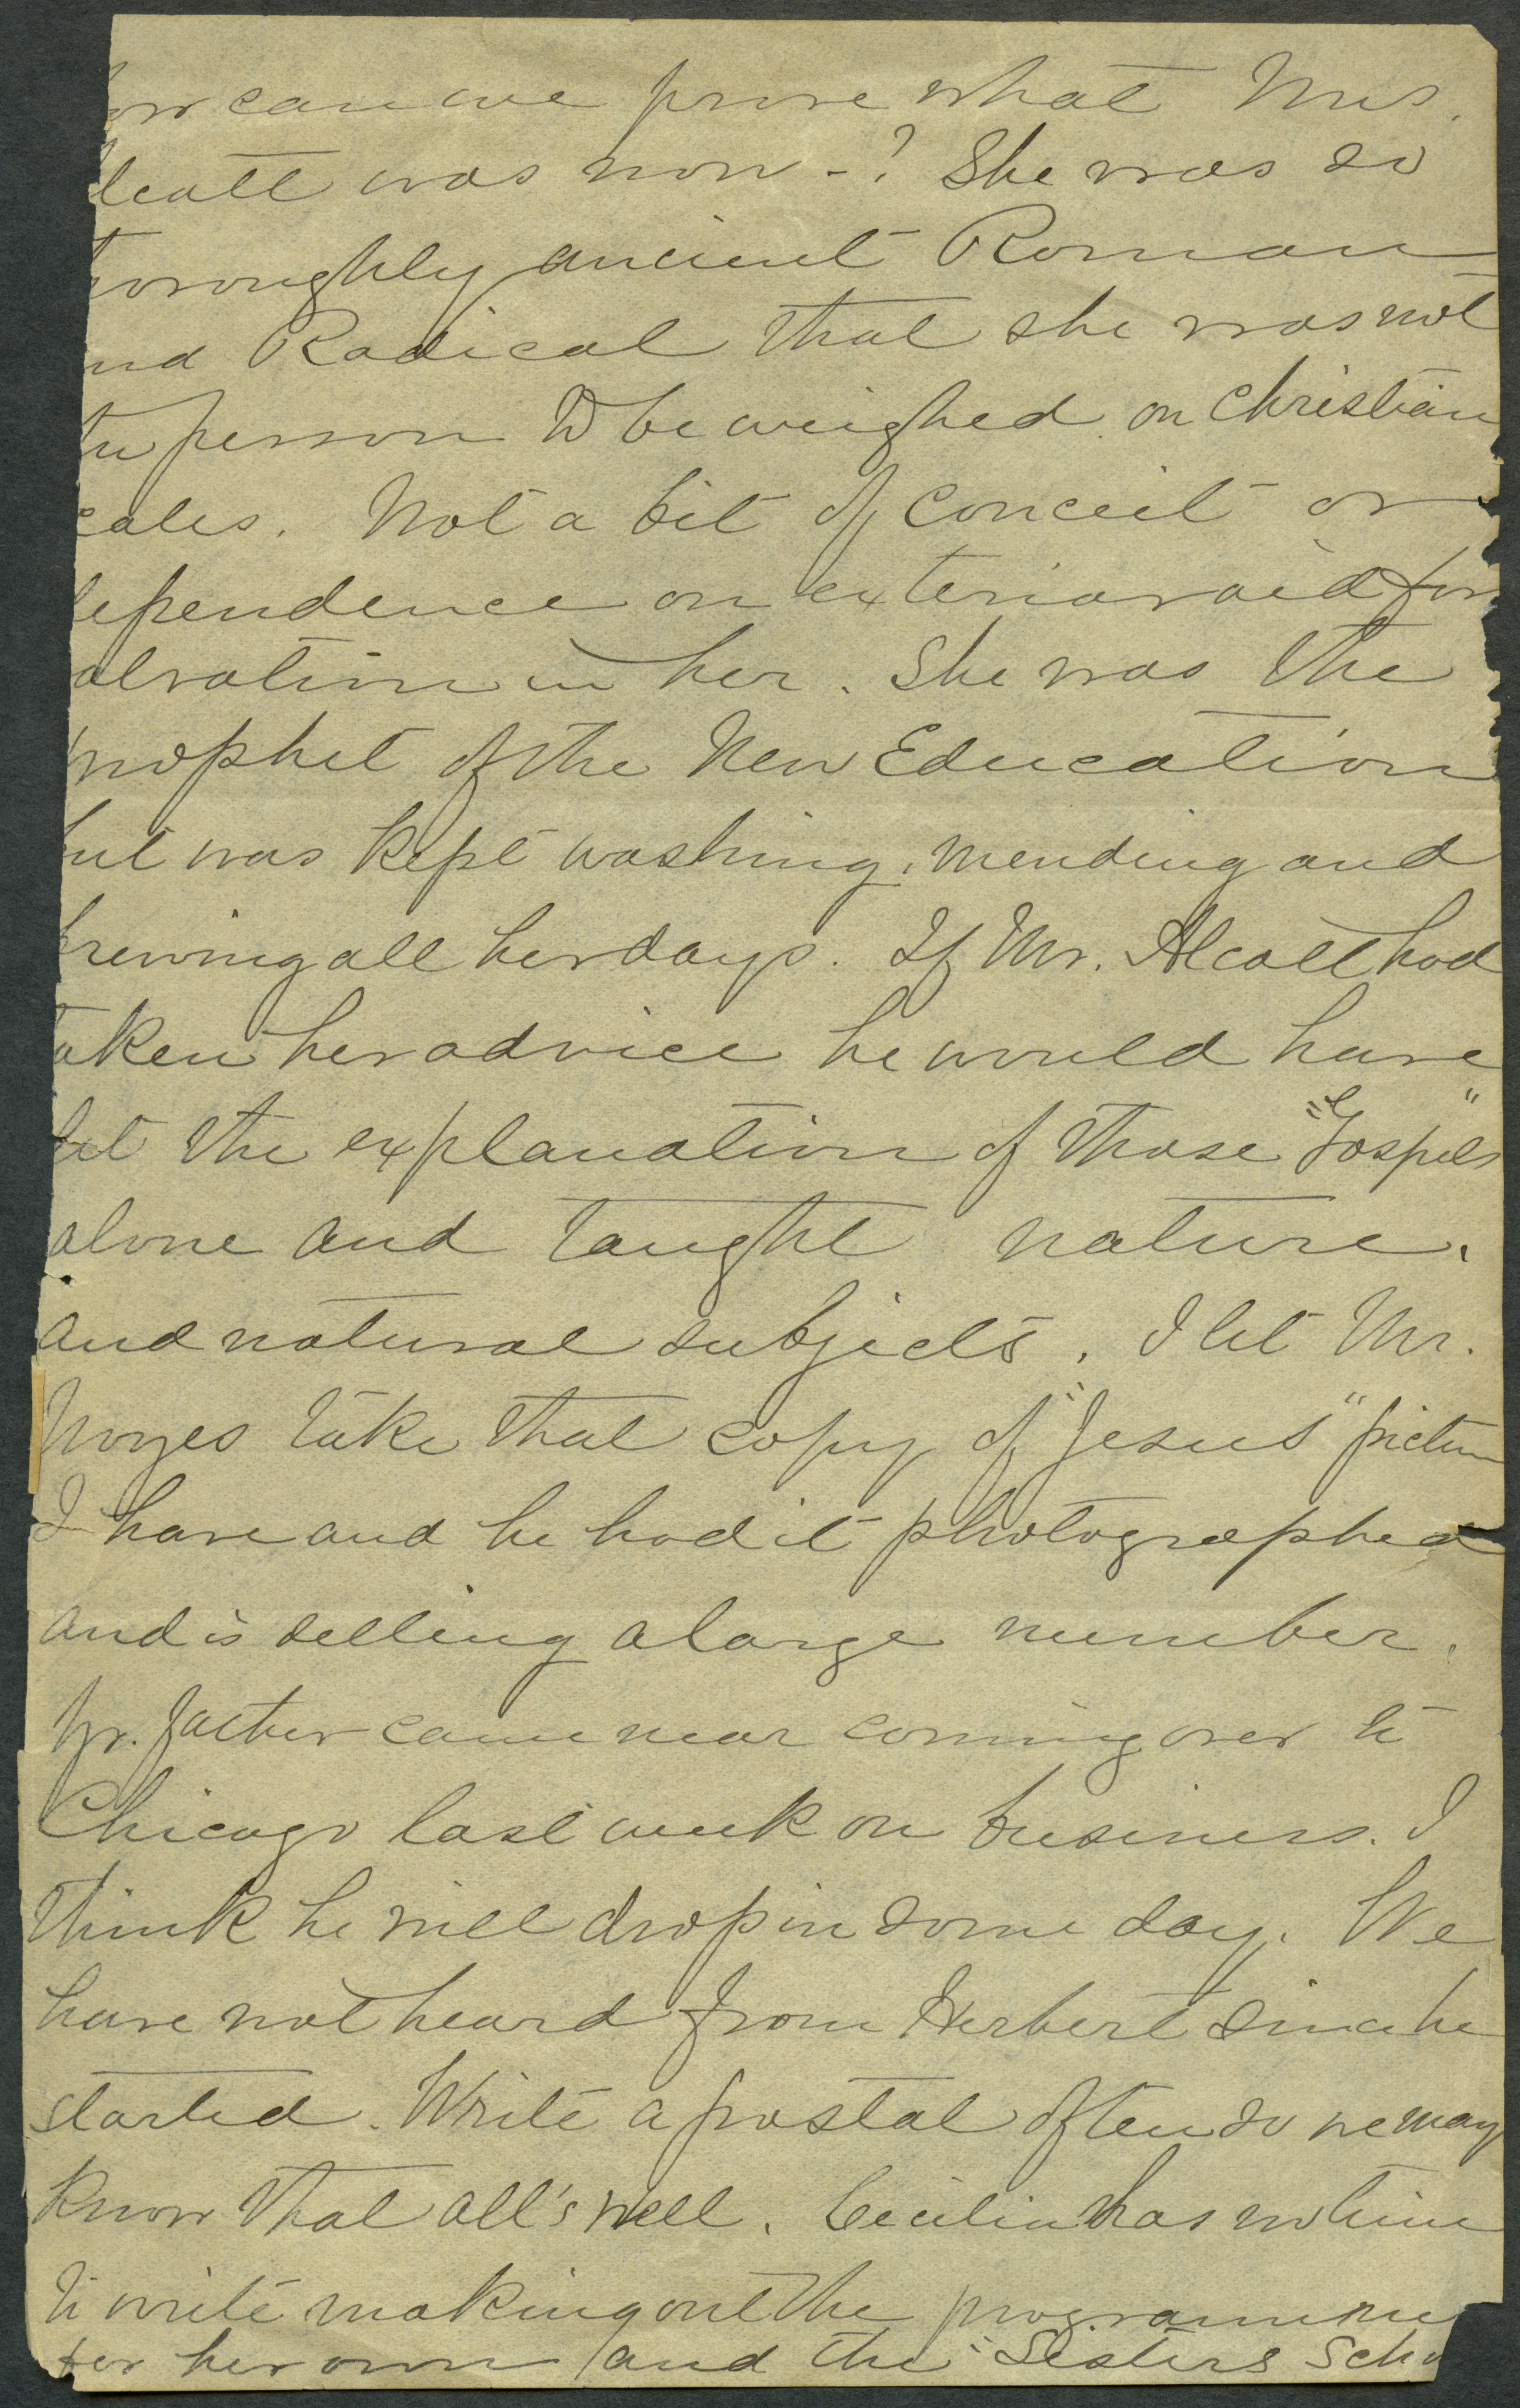 ow can we prove what Mrs.
lcott was now -? She was so
horoughly ancient Roman
nd Radical that she was not
the person to be weighed on Christian
cales. Not a bit of conceit or
dependence on exterior aid for
alvation in her. She was the
prophet of the New Education
but was kept washing, mending and
brewing all her days. If Mr. Alcott had
taken her advice he would have
let the explanation of those "Gospels"
alone and taught nature.
and natural subjects. I let Mr.
Noyes take that copy of "Jesus" picture
I have and he had it photographed
and is selling a large number.
Yr. father came near coming over to
Chicago last week on business. I
think he will drop in some day. We
have not heard from Herbert since he
started. Write a postal often so we may
know that all's well. Cecilia has no time
to write making out the programme
for her own and the "Sisters Scho